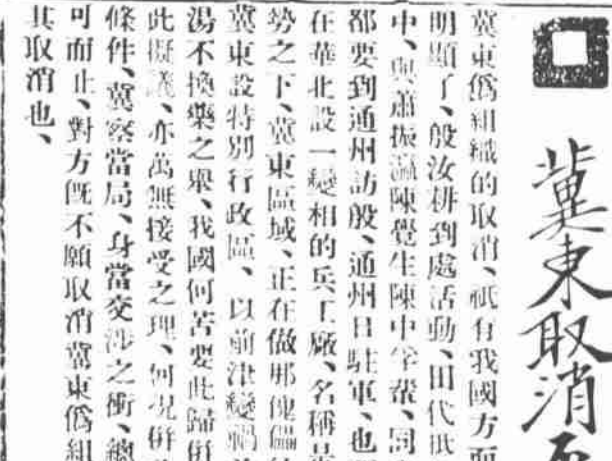 冀東取消
冀東僞組織的取消、祇有我國方面
明顯了、殷汝耕到處活動、田代
中、與蕭振瀛陳覺生陳中孚輩、同
都要到通州訪殷、通州日駐軍、也
在華北設一變相的兵工廠、名稱
勢之下、冀東區域、正在做那傀儡
冀東設特別行政區、以前津變禍
湯不換藥之舉、我國何苦要此歸併
此擬議、亦萬無接受之理、何況併
條件、冀察當局、身當交涉之衝、總
可而止、對方旣不願取消冀東僞組
其取消也、